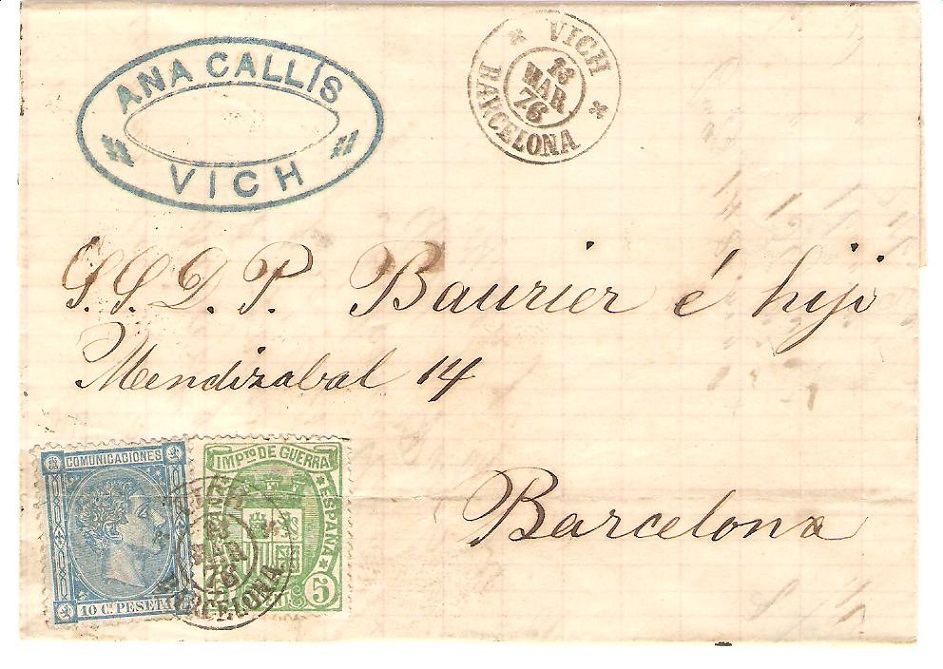 ANA CALLÍS
VICH
VICH
13
MAR
76
BARCELONA
S.S. D. P. Baurier é hijo
Mendizabal 14
Barcelona
COMUNICACIONES
10 C. PESETA
IMPTO DE GUERRA
ESPAÑA
5
VICH
13
MAR
76
BARCELONA